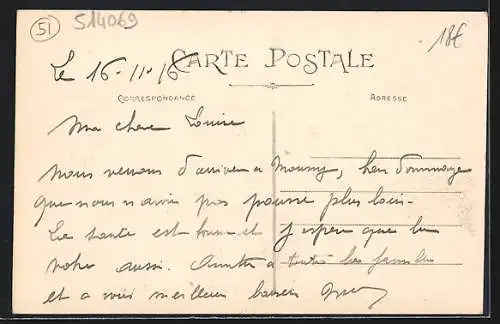 51
S14069
18€
CARTE POSTALE
Le 16-11-16
CORRESPONDANCE
ADRESSE
Ma chere Louise
Nous venons d'arriver a Mourmy, dommage
que nous n'avons pas pousse plus loin-
La sante est bonne et j'espere que la
votre aussi. a toute les familles
et a vous meilleurs baisers